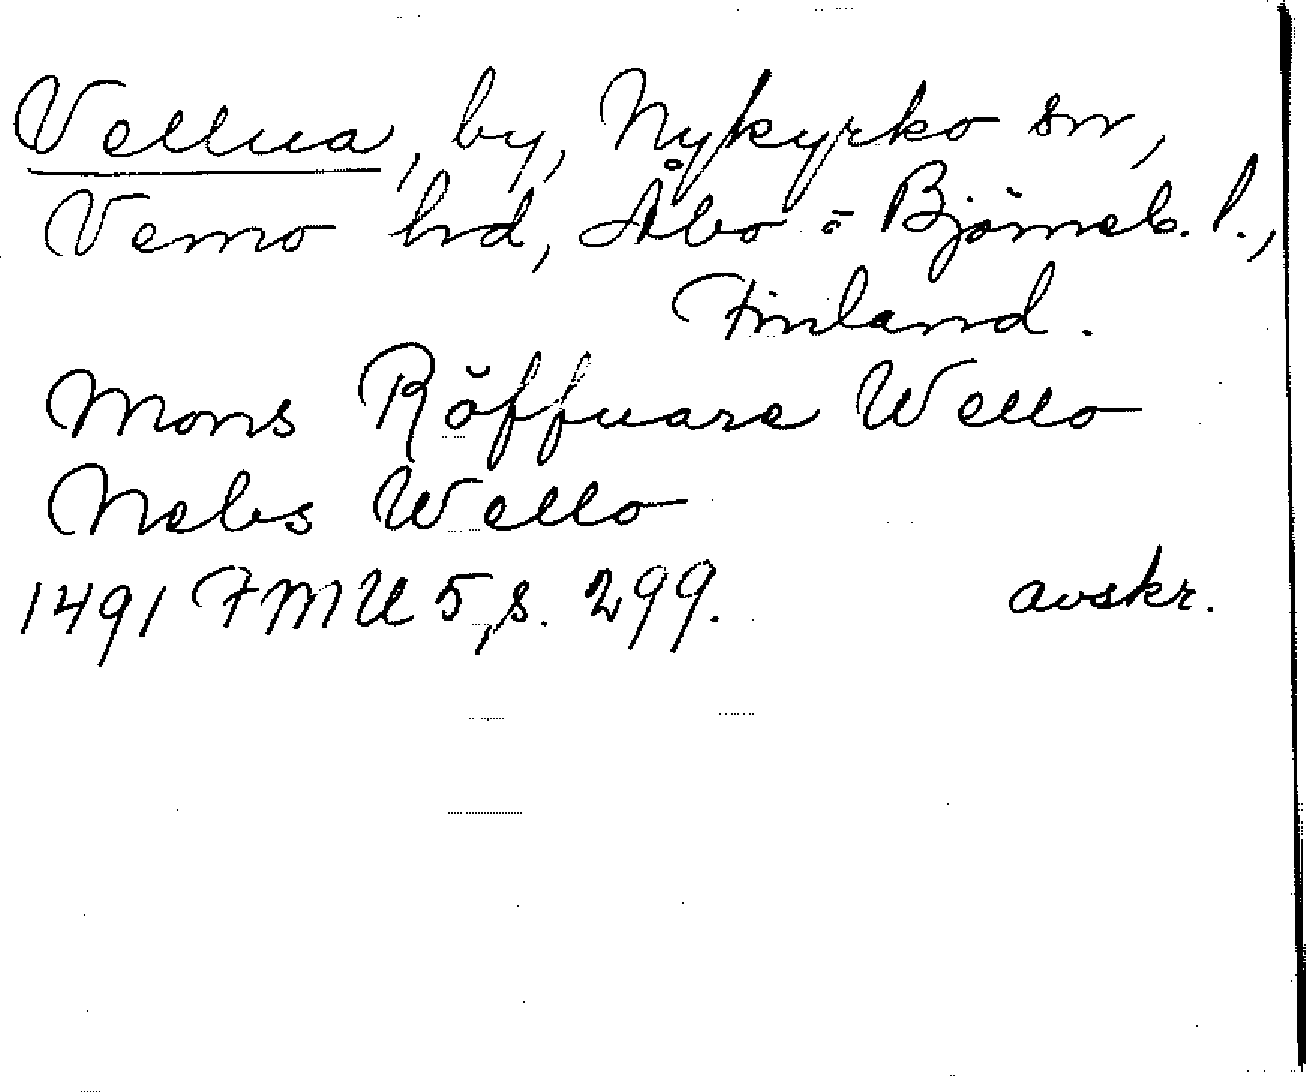 Vellua, by, Nykyrko sn,
Vemo hd, Åbo o Björneb. l.,
Finland.
Mons Röffuare Wello
Nebs Wello
1491 FMU 5, s. 299. avskr.